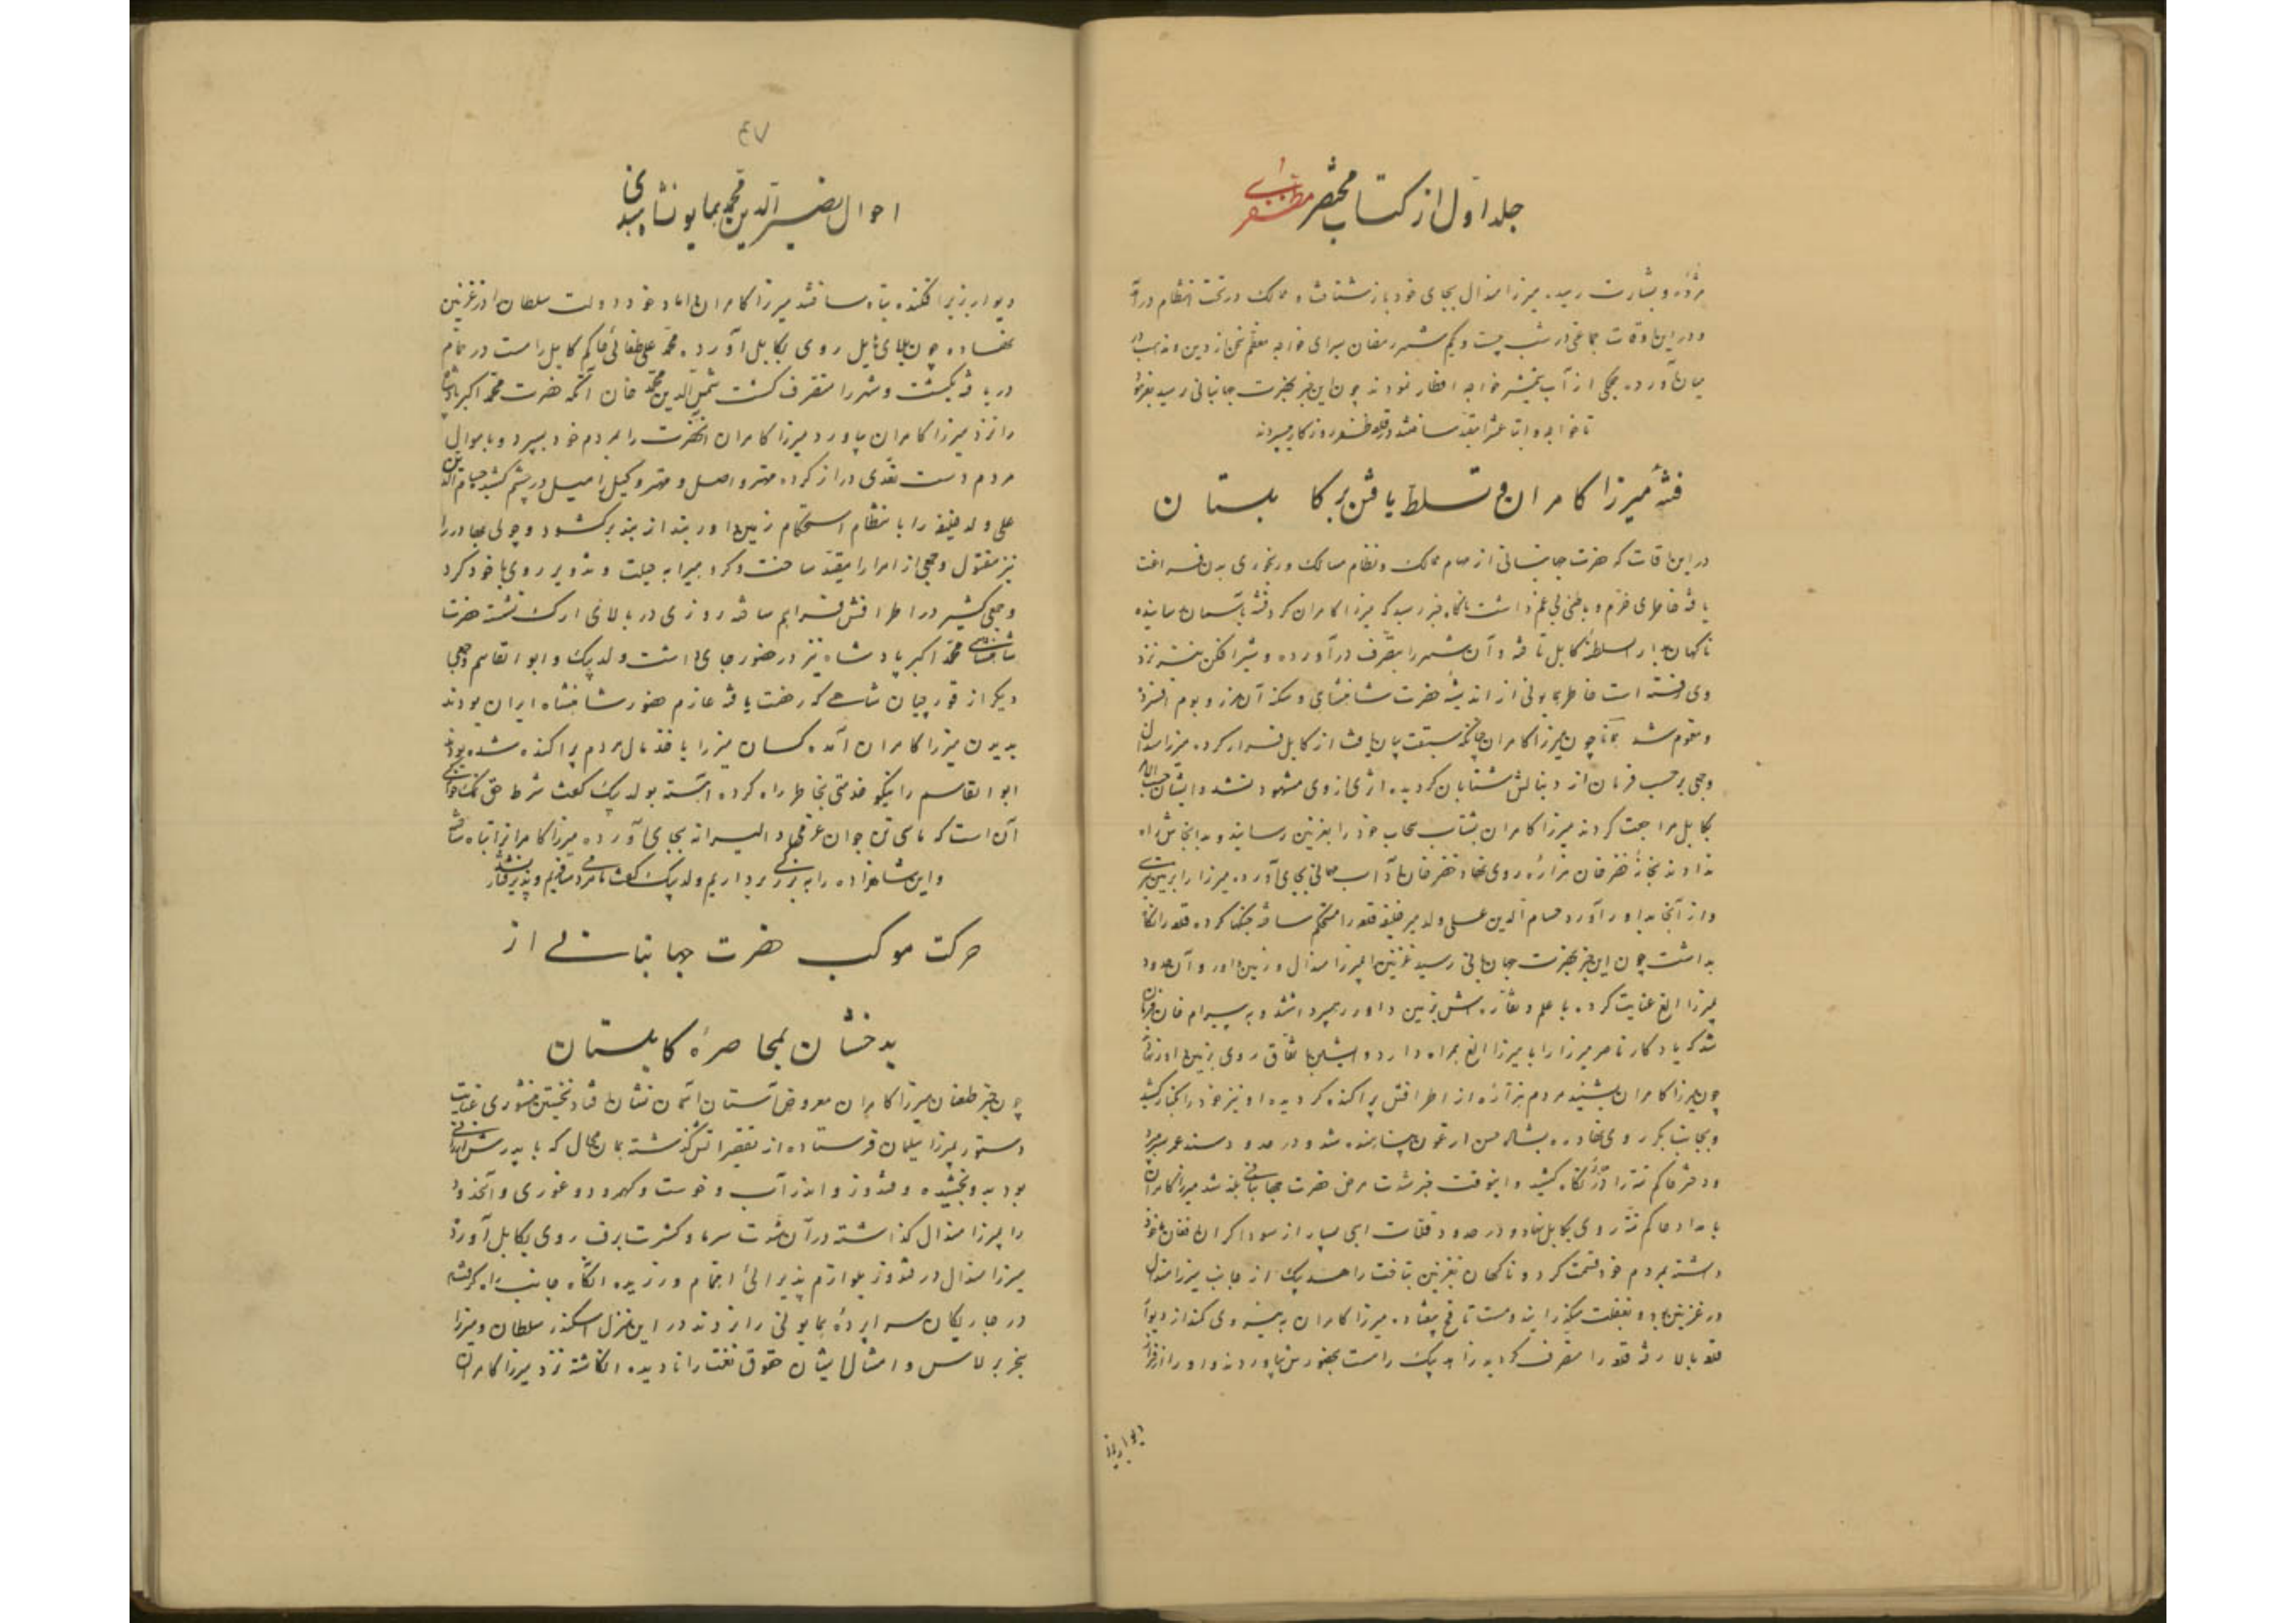 جلد اول از کتاب مختصر مظفری
مژده و بشارت رسید. میرزا هندال بجای خود باز شتافت و ممالک در تحت انتظام درآ
و در این اوقات جماعتی در شب بیست و یکم شهر رمضان سرای خواجه معظم سخن از دین و مذهب در
میان آورده. جمعی از آب شمشیر خواجه افطار نمودند چون این خبر بحضرت جهانبانی رسید بفرمود
تا خواجه و اتباعش را مقید ساختند در قلعه ظفر روزگار میبردند
فتنهٔ میرزا کامران و تسلط یافتن بر کابلستان
در این اوقات که حضرت جهانبانی از مهام ممالک و نظام مسالک و رنجوری بدن فراغت
یافته خاطری خرم و باطنی بی غم داشت ناگاه خبر رسید که میرزا کامران گرد فتنه بآسمان رسانیده
ناگهان بدار السلطنه کابل تاخته و آن شهر را بتصرف درآورده و شیر افکن نیز نزد
وی رفته است خاطر همایونی از اندیشهٔ حضرت شاهنشاهی و سکنه آن مرز و بوم افسرده
و مغموم شد همانا چون میرزا کامران چنانکه سبقت بیان یافت از کابل فرار کرده. میرزا هندال
و جمعی بر حسب فرمان از دنبالش شتابان گردیده اثری از وی مشهود نشد و ایشان حسب الامر
بکابل مراجعت کردند میرزا کامران بشتاب سحاب خود را بغزنین رسانید و بدانجایش راه
ندادند بخانهٔ خضر خان هزاره روی نهاد خضر خان آداب مهمانی بجای آورده. میرزا را به تیری
و از آنجا بداور آورد حسام الدین علی ولد میر خلیفه قلعه را مستحکم ساخته جنگها کرده قلعه را نگاه
بداشت چون این خبر بحضرت جهانبانی رسید غزنین را بمیرزا هندال و زمین داور و آن حدود
بمیرزا الغ عنایت کرده با علم و نقاره اش بزمین داور رهسپر داشت و به بیرام خان فرمان
شد که یادگار ناصر میرزا را با میرزا الغ همراه دارد و ایشان باتفاق روی بزمین داور نهاد
چون میرزا کامران بشنید مردم هزاره از اطرافش پراکنده گردیده او نیز خود را بکنار کشید
و بجانب بکر روی نهاده بشاه حسن ارغون پناهنده شد و در حدود سند عمر میبرد
و دختر حاکم تته را در نکاح کشید و اینوقت خبر شدت مرض حضرت جهانبانی بلند شد میرزا کامران
با مداد حاکم تته روی بکابل نهاد و در حدود قلات اسبی بسیار از سوداگران افغان اخذ
داشته بمردم خود قسمت کرد و ناگهان بغزنین بتافت زاهد بیک از جانب میرزا هندال
در غزنین بود و بغفلت میگذرانید و مست تا صبح بیفتاد. میرزا کامران به نیروی کمند از دیوار
قلعه بالا رفته قلعه را متصرف گردید زاهد بیک را مست بحضورش بیاوردند و او را از فراز
دیوار بزیر
۴۷
احوال نصیر الدین محمد همایون شاه هندی
دیوار بزیر افکنده تباه ساختند میرزا کامران داماد خود دولت سلطان را در غزنین
نهاده چون بلای نازل روی بکابل آورد. محمد علی طغائی حاکم کابل را مست در حمام
دریافته بکشت و شهر را متصرف گشت شمس الدین محمد خان آتکه حضرت محمد اکبر پادشاه
را نزد میرزا کامران بیاورد میرزا کامران آنحضرت را بمردم خود بسپرد و باموال
مردم دست تعدی دراز کرده مهتر واصل و مهتر وکیل را میل در چشم کشید حسام الدین
علی ولد خلیفه را بانتظام استحکام زمین داور بند از بند برکشود و چولی بهادر را
نیز مقتول و جمعی از امرا را مقید ساخت و گرد میرا به حیلت و تذویر روی با خود کرد
و جمعی کثیر در اطرافش فراهم ساخته روزی در بالای ارک نشسته حضرت
شاهنشاهی محمد اکبر پادشاه نیز در حضور جای داشت ولد بیک و ابو القاسم و جمعی
دیگر از قورچیان شاهی که رخصت یافته عازم حضور شاهنشاه ایران بودند
بدیدن میرزا کامران آمده کسان میرزا باخذ مال مردم پراکنده شده بودند
ابو القاسم را نیکو خدمتی بخاطر راه کرده آهسته بولد بیک گفت شرط حق نمک خوارگی
آن است که ما سی تن جوان عراقی دلیرانه بجای آورده میرزا کامران را تباه ساخته
و این شاهزاده را به بزرگی برداریم ولد بیک گفت ما مردم مسافریم و پذیرفتار نشد
حرکت موکب حضرت جهانبانی از
بدخشان بمحاصرهٔ کابلستان
چون خبر طغیان میرزا کامران معروض آستان آسمان نشان افتاد نخستین منشوری عنایت
دستور بمیرزا سلیمان فرستاده از تقصیراتش گذشته همان محال که با پدرش ارزانی
بود بدو بخشیده و قندوز و اندرآب و خوست و کهمرد و غوری و آنحدود
را بمیرزا هندال گذاشته در آن شدت سرما و کثرت برف روی بکابل آورد
میرزا هندال در قندوز بلوازم پذیرائی اهتمام ورزیده آنگاه جانب راه گرفتند
در چاریکاران سراپردهٔ همایونی را نزدند در این منزل اسکندر سلطان و میرزا
سنجر برلاس و امثال ایشان حقوق نعمت را نادیده انگاشته نزد میرزا کامران